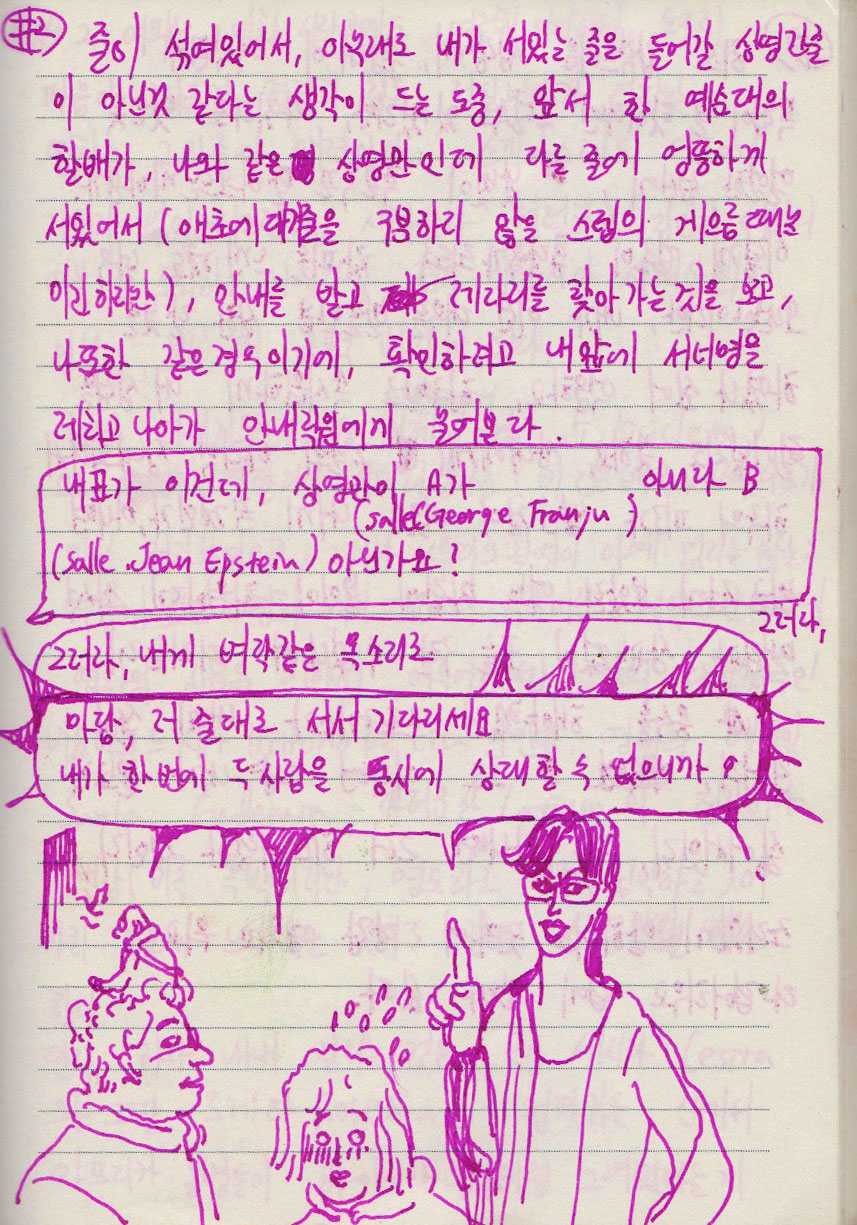 #2
줄이 섞여있어서, 아무래도 내가 서있는 줄은 들어갈 상영관줄
이 아닌것 같다는 생각이 드는 도중, 앞서 한 예순대의
할배가, 나와 같은 상영관인데 다른 줄에 엉뚱하게
서있어서 (애초에 대기줄을 구분하지 않은 스텝의 게으름 때문
이긴하지만), 안내를 받고 제자리를 찾아가는것을 보고,
나또한 같은경우이기에, 확인하려고 내앞에 서너명을
제치고 나아가 안내직원에게 물어본다.
내표가 이건데, 상영관이 A가 아니라 B
(salle George Franju)
(salle Jean Epstein) 아닌가요?
그러자,
그러자, 내게 벼락같은 목소리로
마담, 저 줄대로 서서 기다리세요
내가 한번에 두사람을 동시에 상대할 수 없으니까!